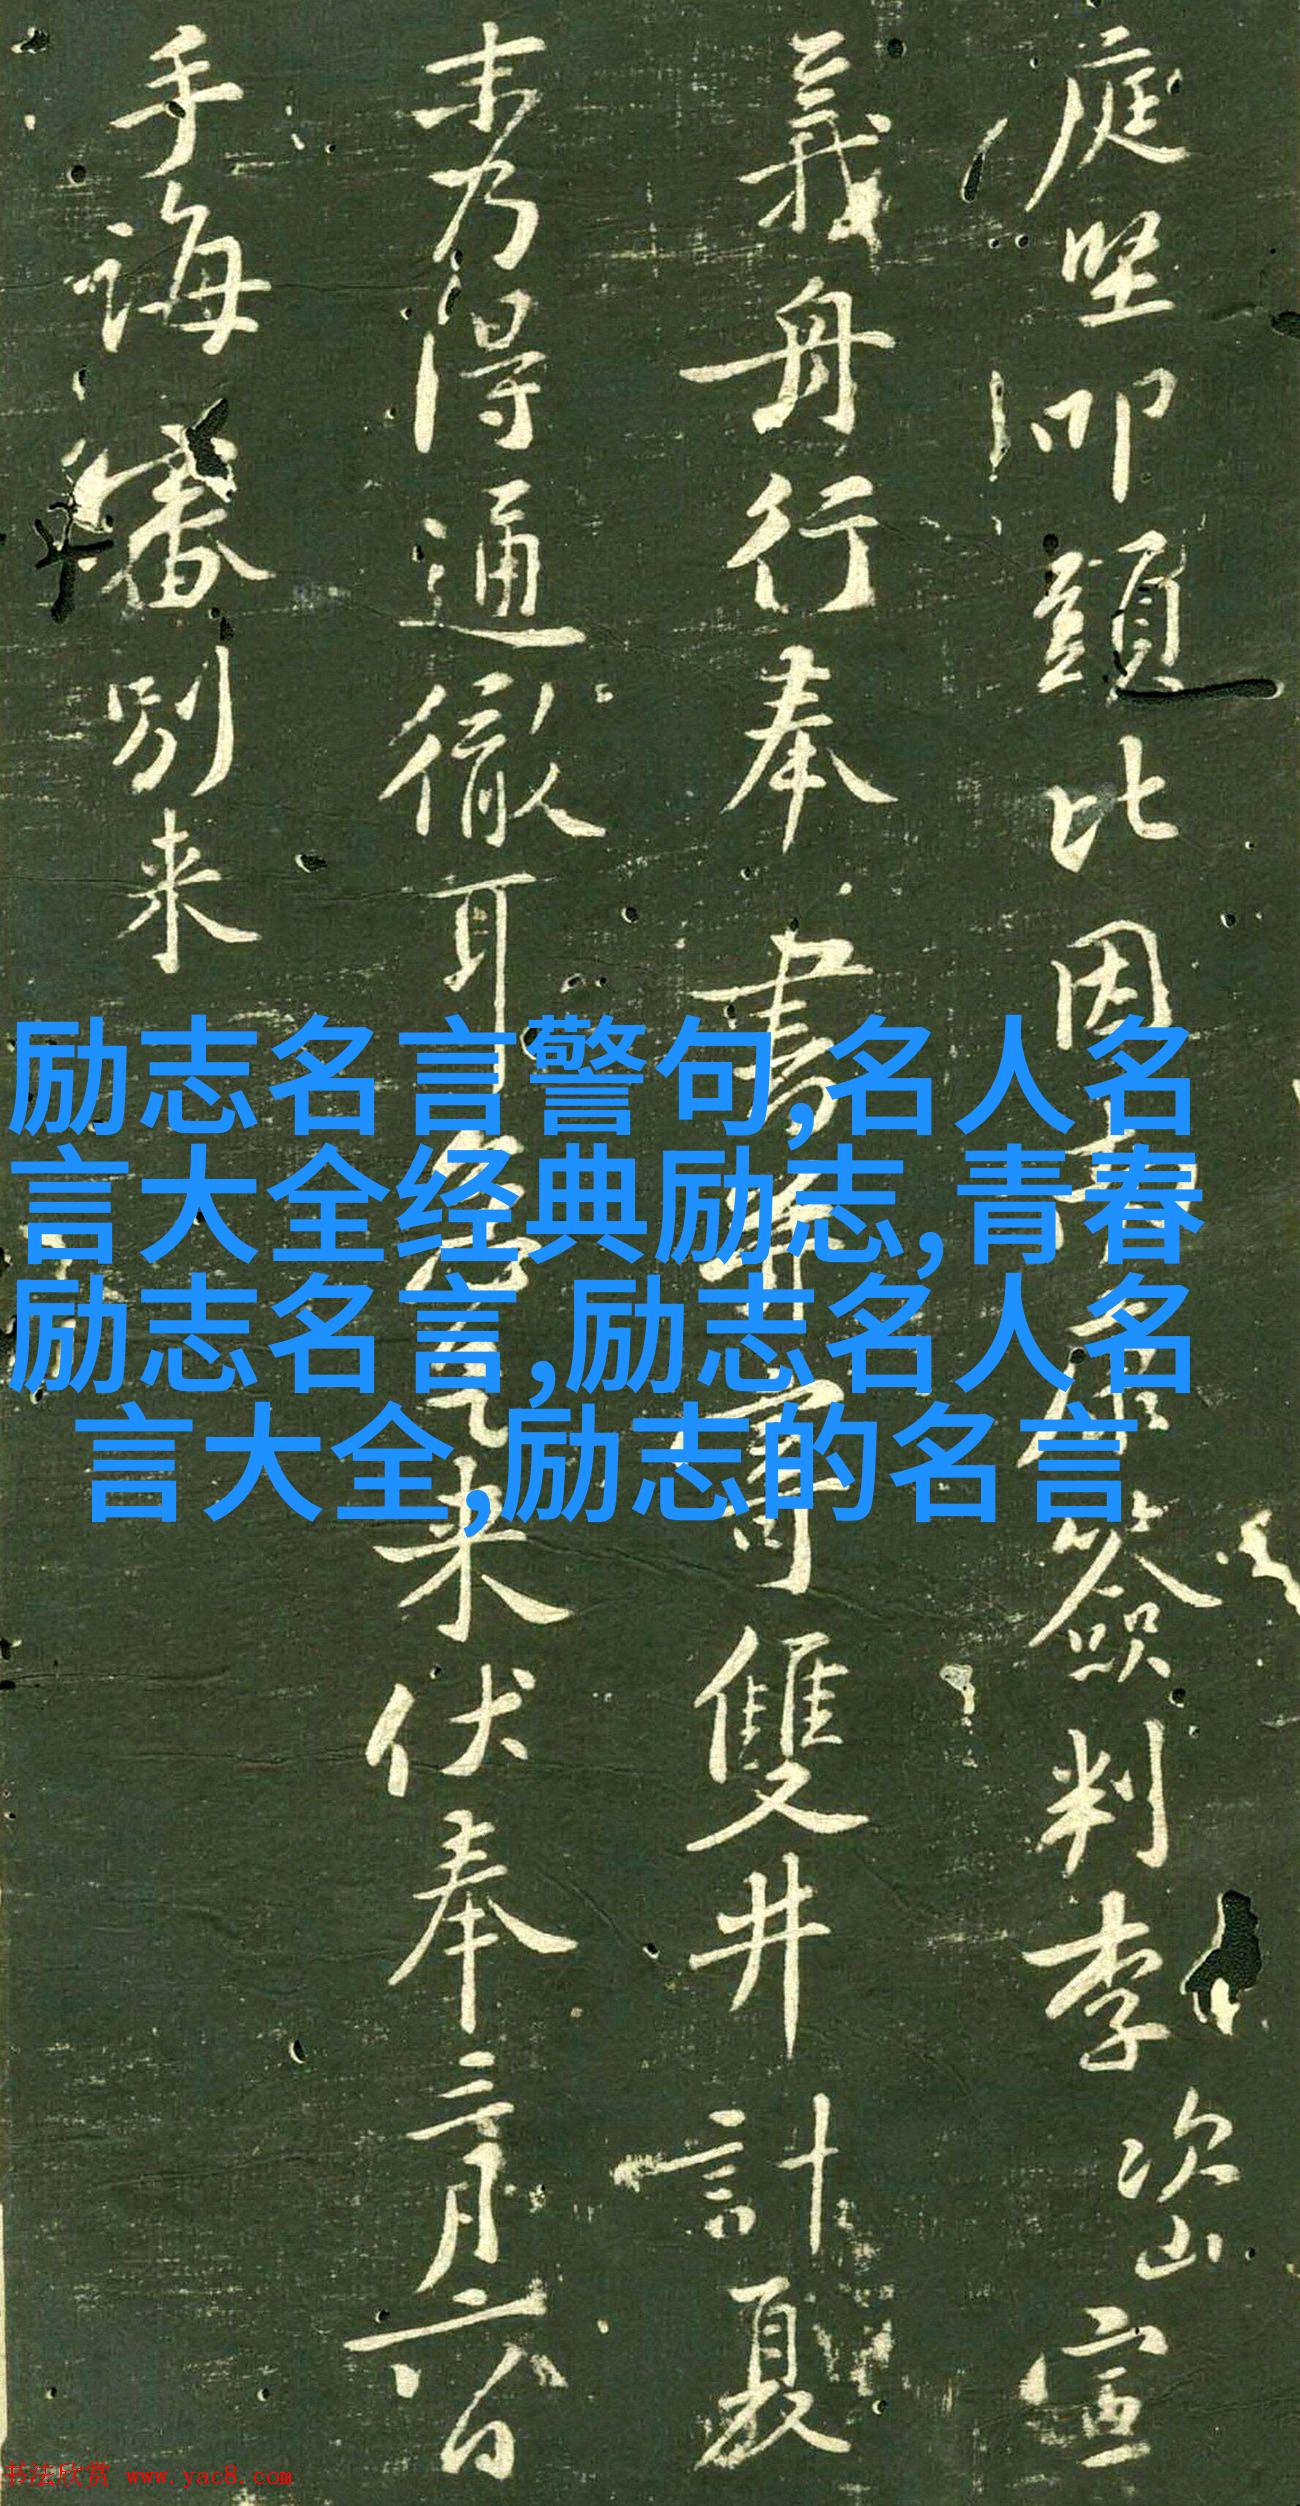 庭堅叩頭比因
簽判李次山宣
義舟行奉書
寄雙井計
未乃得通徹耳
来伏奉三月六日
手誨審別来
励志名言警句,名人名
言大全经典励志,青春
励志名言,励志名人名
言大全,励志的名言
书法欣赏 www.yac8.com